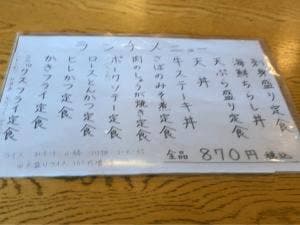 ランチメニュー
刺身盛り定食
海鮮ちらし丼
天ぷら盛り定食
天丼
牛ステーキ丼
さばのみそ煮定食
肉のしょうが焼き定食
ポークソテー定食
ロースとんかつ定食
ヒレかつ定食
かきフライ定食
フライ定食
全品 870円 税込